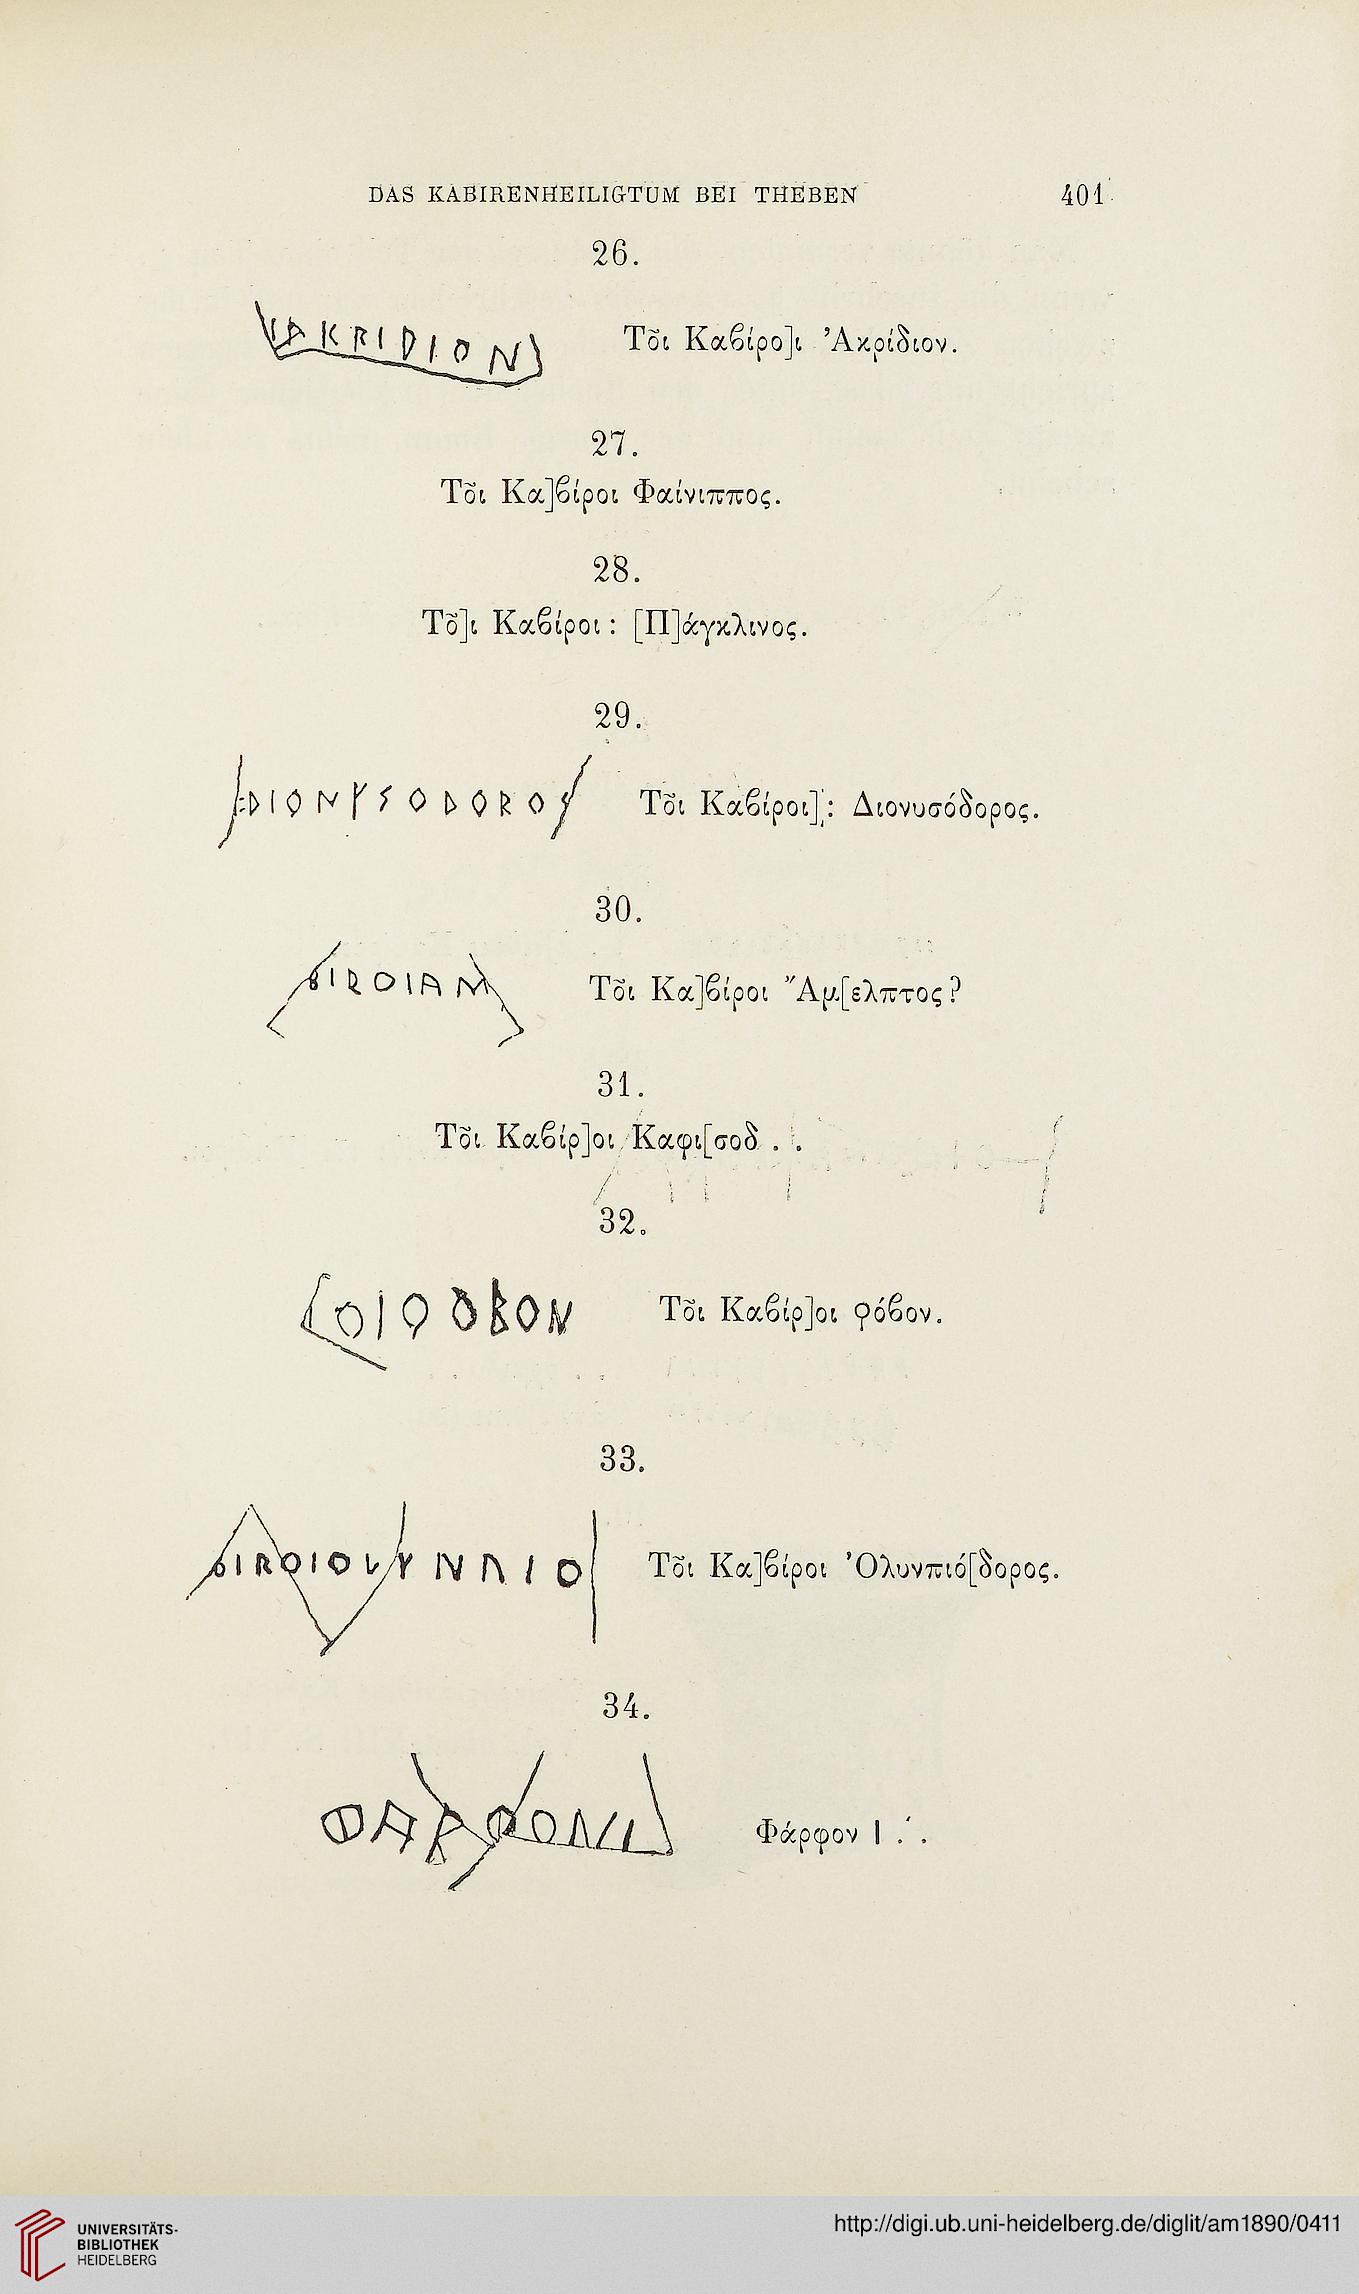 DAS KABIRENHEILIGTUM BEI THEBEN 401
26.
ΙΑKRIDION Το͂ι Καϐίρο]ι Ἀκρίδιον.
27.
Το͂ι Κα]ϐίροι Φαίνιππος.
28.
Το͂]ι Καϐίροι : [Π]άγκλινος.
29.
:DIONYSODOROS Το͂ι Καϐίροι] : Διονυσόδορος.
30.
BIROIAM Το͂ι Κα]ϐίροι Ἄμ[ελπτος?
31.
Το͂ι Καϐίρ]οι Καφι[σοδ . .
32.
OIϘOBON Το͂ι Καϐίρ]οι ϙόϐον.
33.
BIROIOLYNΠIO Το͂ι Κα]ϐίροι Ὀλυνπιό[δορος.
34.
ΦARΦON Φάρφον Ι . . .
UNIVERSITÄTS-
BIBLIOTHEK
HEIDELBERG
http://digi.ub.uni-heidelberg.de/diglit/am1890/0411